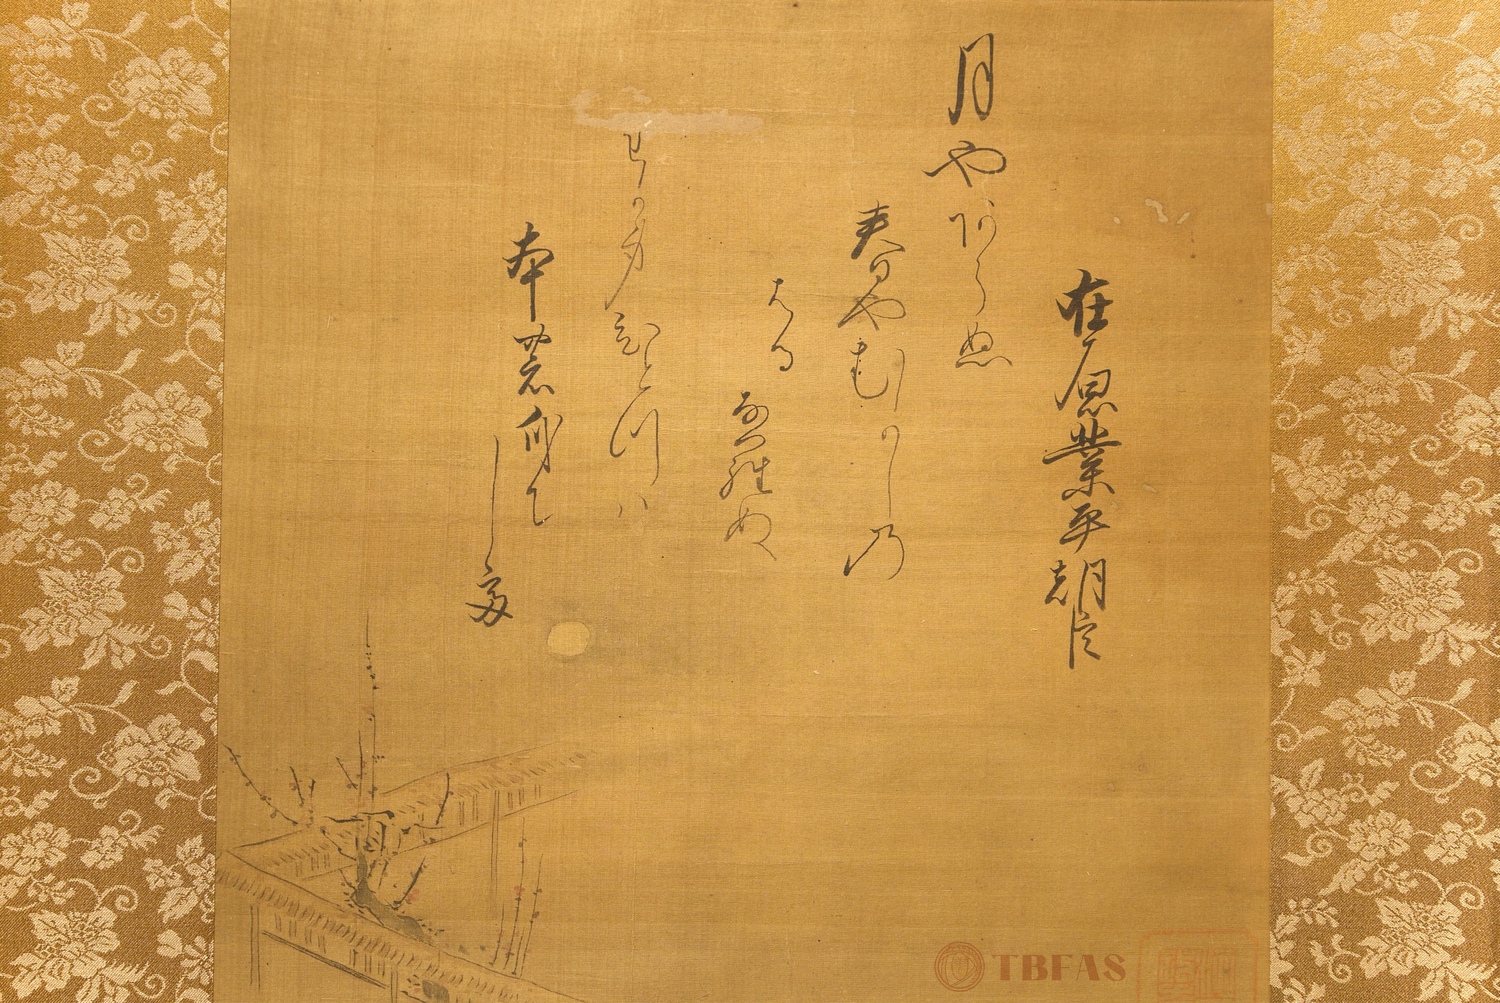 在原業平朝臣
月やあらぬ
春やむかしの
はる
ならぬ
わか身ひとつハ
本の身に
して
TBFAS